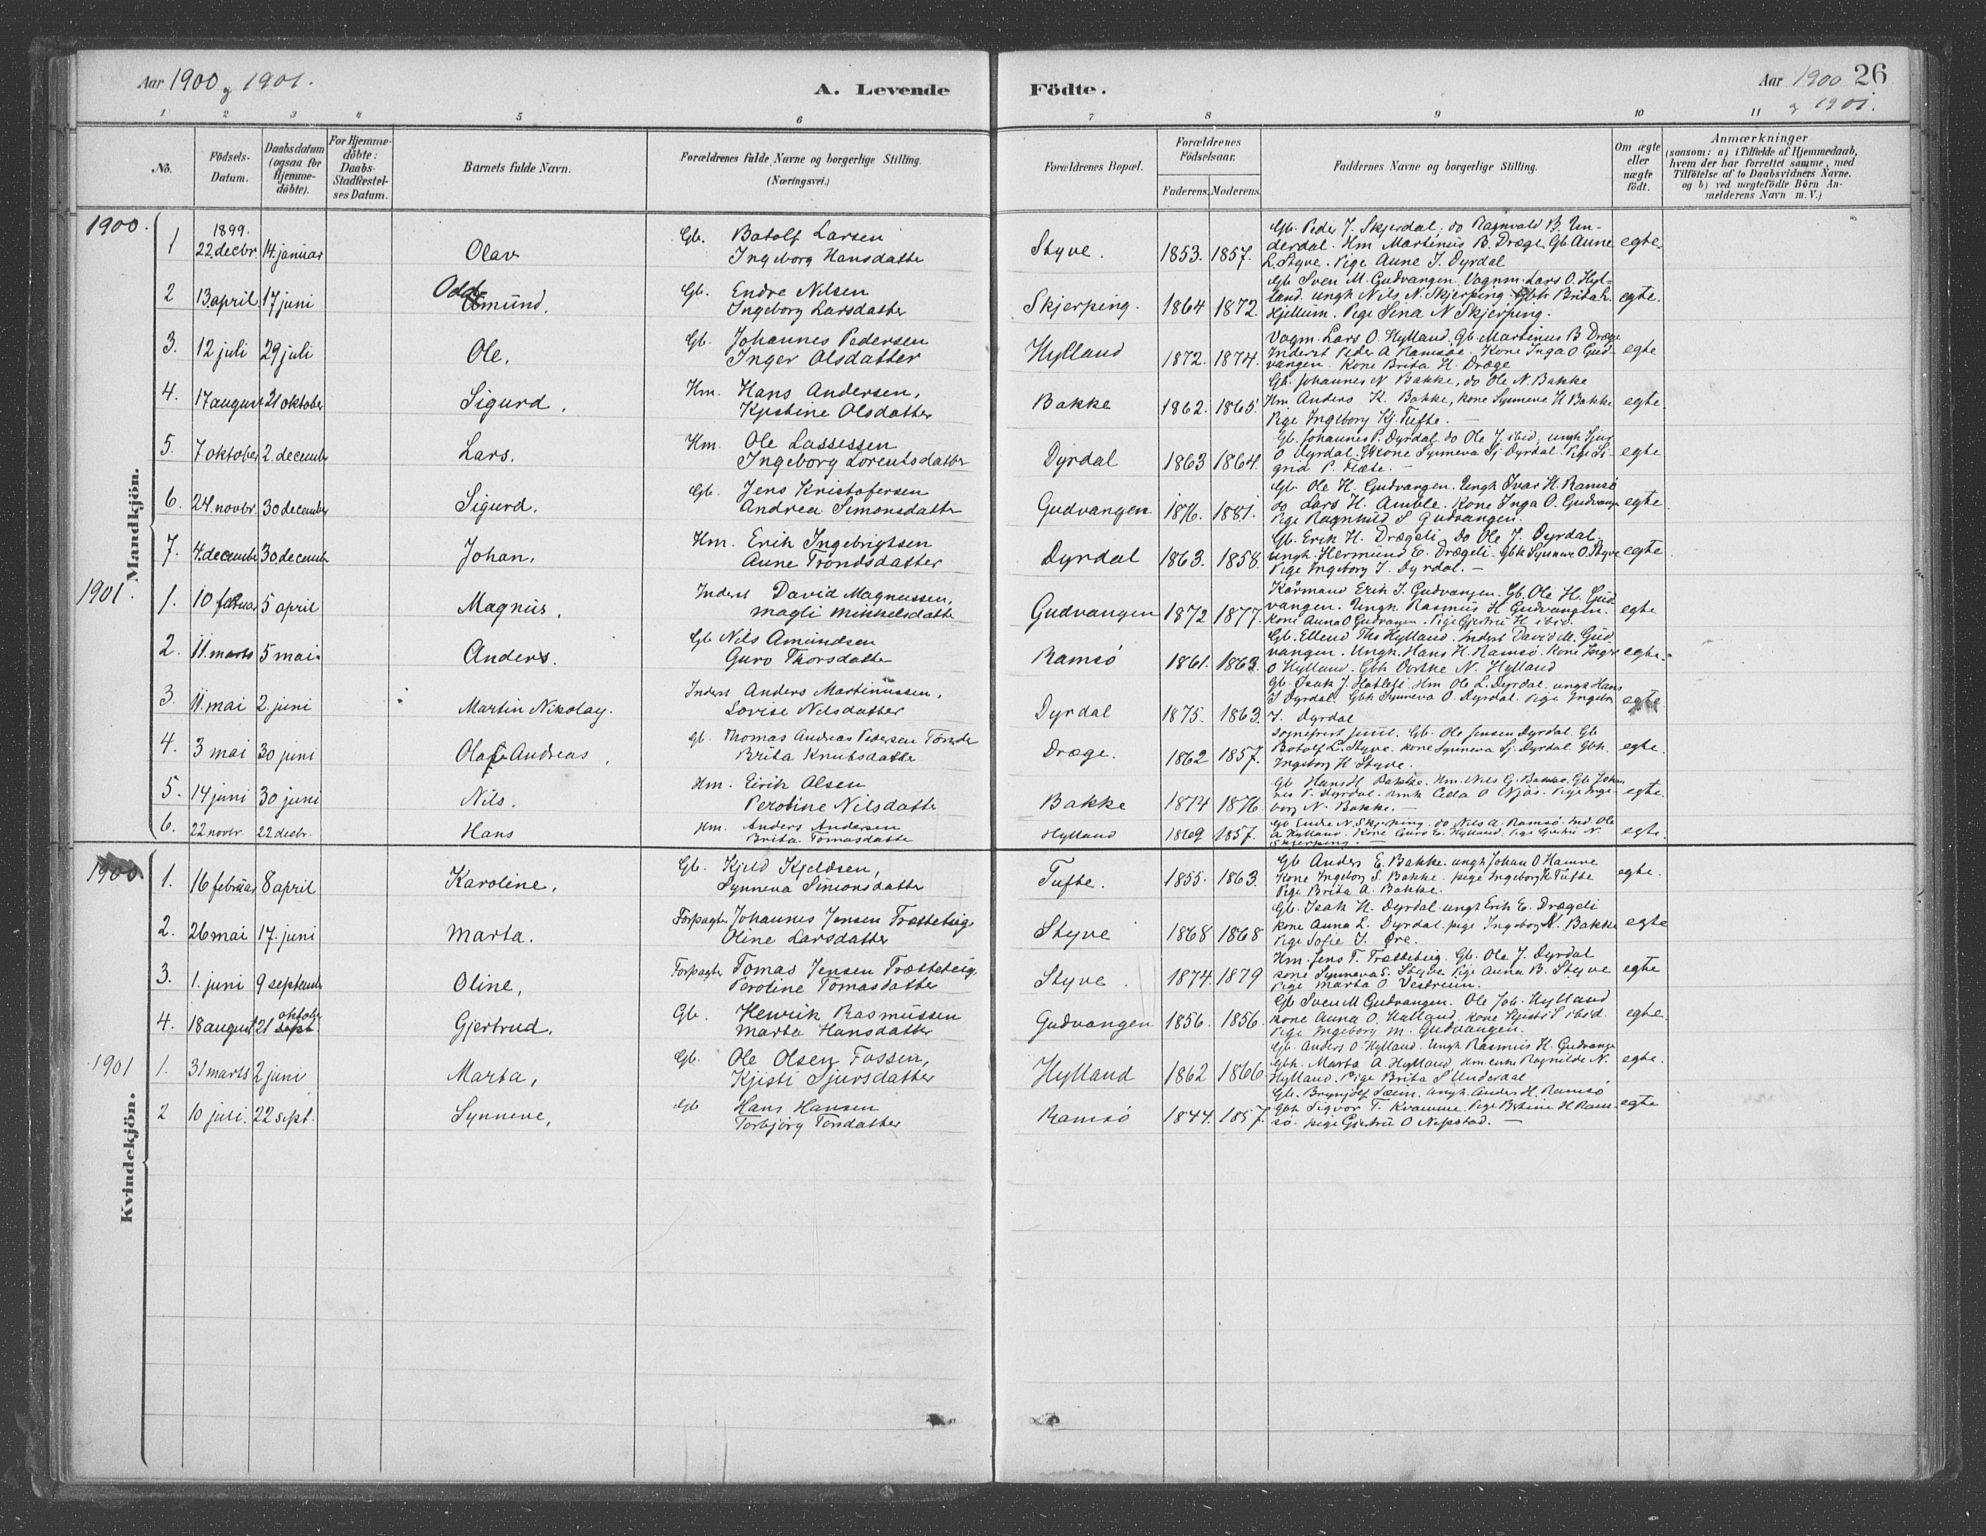 Aar 1900 og 1901.
A. Levende
Födte.
Aar 1900 26
og 1901.
1 2 3 4 5 6 7 8 9 10 11
No.
Födsels-
Datum.
Daabsdatum
(ogsaa for
Hjemme-
döbte).
For Hjemme-
döbte:
Daabs-
Stadfæstel-
ses Datum.
Barnets fulde Navn.
Forældrenes fulde Navne og borgerlige Stilling.
(Næringsvei.)
Forældrenes Bopæl.
Forældrenes
Födselsaar.
Faderens. Moderens.
Faddernes Navne og borgerlige Stilling.
Om ægte
eller
uægte
födt.
Anmærkninger
(saasom: a) i Tilfælde af Hjemmedaab,
hvem der har forrettet samme, med
Tilföielse af to Daabsvidners Navne.
og b) ved uægtefödte Börn An-
melderens Navn m. V.)
Mandkjön.
1900.
1 1899. 22 decbr. 14. januar Olav Gb. Botolf Larsen
Ingeborg Hansdatter
Styve. 1853. 1857.
Gb. Peder J. Skjerdal. do Ragnvald B. Un-
derdal. Hm Martinus B. Dræge. Gb Anne
L. Styve. Pige Anne J. Dyrdal
egte
2 13 april 17 juni Odd-mund. Gb. Endre Nilsen
Ingeborg Larsdatter
Skjerping. 1864 1872.
Gb Sven M. Gudvangen. Vognm. Lars O. Hyl-
land. ungk Nils N. Skjerping. Gbk Brita L.
Hjellum. Pige Sina N Skjerping.
egte.
3. 12 juli 29 juli Ole, Gb. Johannes Pedersen
Inger Olsdatter
Hylland 1872. 1874.
Vogm. Lars O. Hylland, Gb Martinus B Dræge
Inderst Peder A Ramsøe, Kone Inga O Gud-
vangen. Kone Brita H. Dræge
egte
4. 17 august 21 oktober Sigurd, Hm. Hans Andersen,
Kristine Olsdatter
Bakke 1862. 1865.
Gb. Johannes N Bakke, do Ole N. Bakke
Hm. Anders K. Bakke, Kone Synneva H Bakke
Pige Ingeborg Kj. Tufte. —
egte.
5. 7 oktober 2. december Lars. Hm. Ole Lassessen
Ingeborg Lorentsdatter
Dyrdal 1863 1864.
Gb. Johannes P. Dyrdal. do Ole J. ibid, ungk Sjur
O Dyrdal. Kone Synneva Sj. Dyrdal. Pige Si-
grid P. —
egte
6. 24. novbr. 30 december Sigurd. Gb. Jens Kristofersen
Andrea Simonsdatter
Gudvangen 1876. 1881.
Gb. Ole H. Gudvangen. Ungk Ivar H. Ramsø
do Lars H. Amble. Kone Inga O. Gudvangen
Pige Ragnhild S Gudvangen.
egte
7. 4. december 30 december Johan, Hm. Erik Ingebrigtsen
Anne Trondsdatter
Dyrdal 1863. 1858.
Gb. Erik H. Drægeli. Do Ole J. Dyrdal.
Ungk Hermund E. Drægeli. Gbk Synneve O. Styve
Pige Ingeborg J. Dyrdal. —
egte
1901.
1. 10 februar 5 april Magnus, Inderst David Magnussen,
Magli Mikkelsdatter
Gudvangen 1872 1877.
Kårmand Erik J. Gudvangen. Gb. Ole H. Gud
vangen. Ungk. Rasmus H Gudvangen.
Kone Anna O Gudvangen. Pige Gjertru H ibid.
egte
2. 11. marts 5 mai Anders. Gb Nils Amundsen
Guro Thorsdatter
Ramsø 1861. 1863.
Gb. Ellend Ths Hylland. Inderst David M. Gud
vangen. Ungk. Hans H. Ramsø. Kone Inger
O Hylland. Gbk Dortke N. Hylland
egte.
3 11. mai 2. juni Martin Nikolay. Inderst Anders Martinussen,
Lovise Nilsdatter
Dyrdal 1875. 1863.
Gb. Isak J. Hatlesi. Hm Ole L. Dyrdal. ungk Hans
J Dyrdal. Gbk Synneva O. Dyrdal. Pige Ingebr
J. Dyrdal
egte
4. 3 mai 30 juni Olaf Andreas, Gb. Thomas Andreas Pedersen
Brita Knutsdatter
Dræge. 1862 1857.
Gb. Ole Jensen Dyrdal. Gb
Botolf L. Styve. Kone Synneva Sj. Dyrdal. Gbk.
Ingeborg H Styve.
egte.
5. 14 juni 30 juni Nils. Hm. Eirik Olsen
Peroline Nilsdatter
Bakke 1874 1876.
Gb Hans H. Bakke. Hm. Nils G. Bakke. Gb Johan
nes P. Dyrdal. O Njøs. Pige Inge-
borg N. Bakke. —
egte.
6. 22 novbr. 22 decbr. Hans Hm. Anders Andersen
Brita Tomasdatter
Hylland 1869 1857.
Gb Endre N. Skjerping. do Nils A. Ramsø. Ind. Ole
A. Hylland. Kone Guro E. Hylland. Pige Gjertru N.
Skjerping. —
egte.
Kvindekjön.
1900
1. 16 februar 8 april Karoline, Gb. Kjeld Kjeldsen,
Synneva Simonsdatter
Tufte. 1855. 1863.
Gb Anders E. Bakke. ungk Johan O Hamre
Kone Ingeborg S. Bakke. Pige Ingeborg K Tufte
Pige Brita A. Bakke.
egte.
2. 26 mai 17. juni Marta. Forpagter Johannes Jensen Trætteteig
Oline Larsdatter
Styve 1868 1868
Gb. Isak H. Dyrdal. ungk Erik E. Drægeli
Kone Anna L. Dyrdal. pige Ingeborg N. Bakke
Pige Sofie J. Øre.
egte
3. 1. juni 9 september Oline, Forpagter Tomas Jensen Trætteteig.
Peroline Tomasdatter
Styve. 1874. 1879
Hm. Jens T. Trætteteig. Gb. Ole J. Dyrdal
Kone Synneva S. Styve Pige Anna B. Styve
Pige Marta O Vestreim.
egte
4. 18 august 21 oktober sept Gjertrud. Gb. Henrik Rasmussen
Marta Hansdatter
Gudvangen 1856. 1856.
Gb Sven M Gudvangen. Ole Joh. Hylland
Kone Anna O. Hylland, Kone Kjisti S ibid.
Pige Ingeborg M. Gudvangen.
egte.
1901
1. 31 marts 2 juni Marta, Gb. Ole Olsen Fossen,
Kjisti Sjursdatter
Hylland 1862 1866
Gb. Anders O. Hylland. Ungk Rasmus H. Gudvangen
Gbk. Marta A Hylland, Hm. enke Ragnilde N.
Hylland. Pige Brita S Underdal
egte.
2 10 juli. 22 sept. Synneve, Gb Hans Hansen
Torbjørg Torsdatter
Ramsø 1844. 1857.
Gb. Brynjolf Lein. Ungk. Anders H. Ramsø
Gbk Sigvor T. Kvamme. Pige Betine H Ram-
sø. pige Gjertru O Nepstad. —
egte